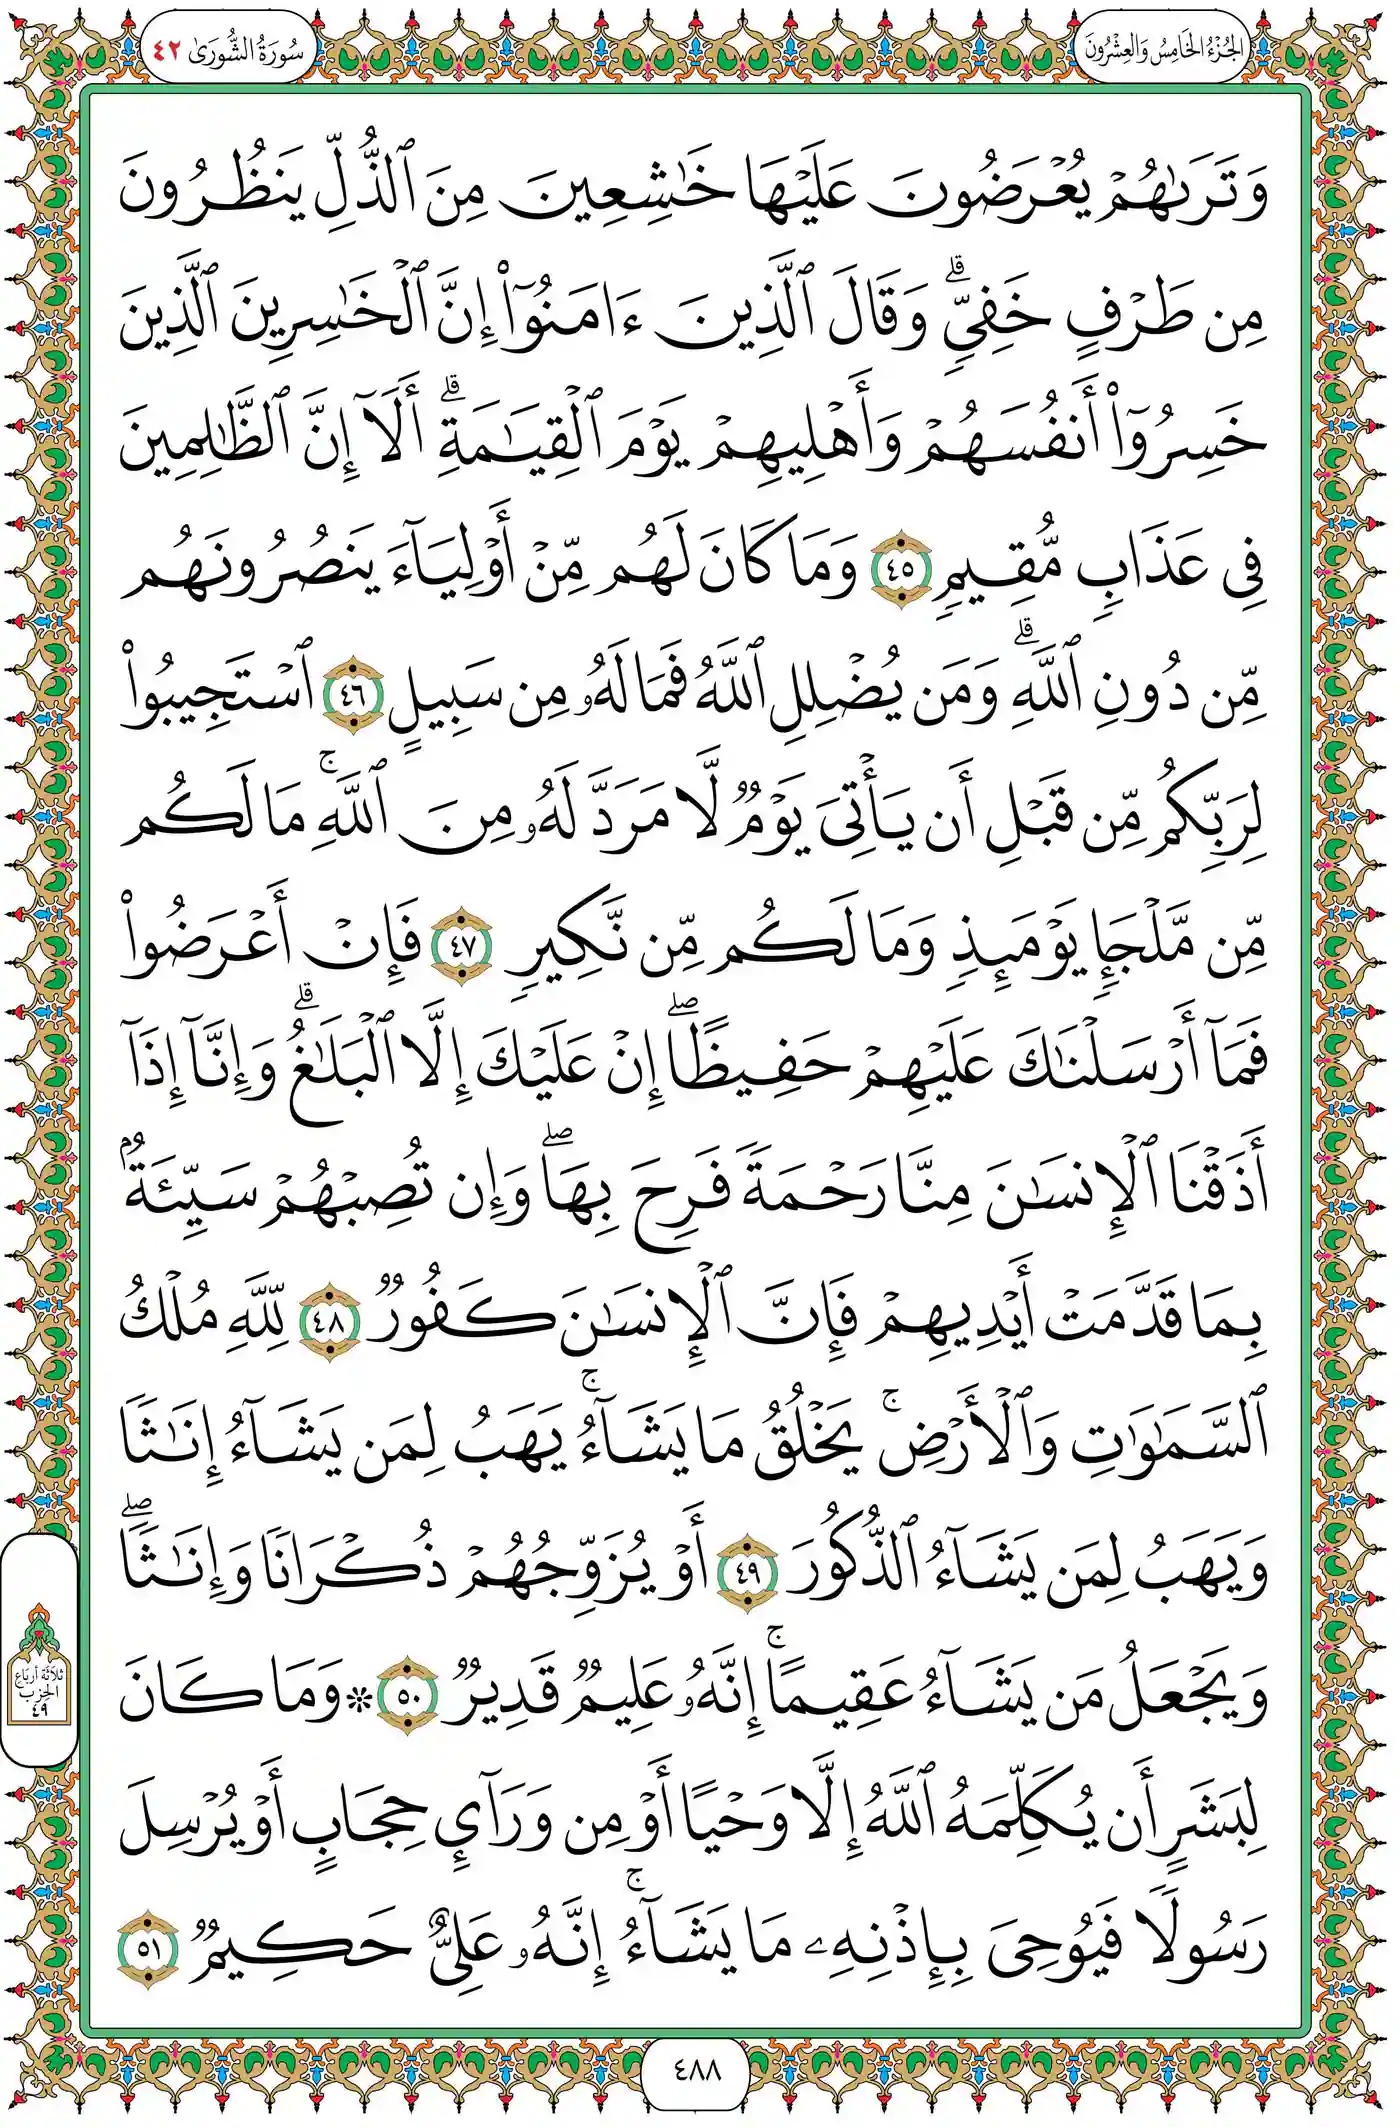 الجُزْءُ الخَامِسُ وَالعِشْرُونَ
سُورَةُ الشُّورَىٰ ٤٢
وَتَرَىٰهُمْ يُعْرَضُونَ عَلَيْهَا خَـٰشِعِينَ مِنَ ٱلذُّلِّ يَنظُرُونَ
مِن طَرْفٍ خَفِىٍّ ۗ وَقَالَ ٱلَّذِينَ ءَامَنُوٓا۟ إِنَّ ٱلْخَـٰسِرِينَ ٱلَّذِينَ
خَسِرُوٓا۟ أَنفُسَهُمْ وَأَهْلِيهِمْ يَوْمَ ٱلْقِيَـٰمَةِ ۗ أَلَآ إِنَّ ٱلظَّـٰلِمِينَ
فِى عَذَابٍ مُّقِيمٍ ٤٥ وَمَا كَانَ لَهُم مِّنْ أَوْلِيَآءَ يَنصُرُونَهُم
مِّن دُونِ ٱللَّهِ ۗ وَمَن يُضْلِلِ ٱللَّهُ فَمَا لَهُۥ مِن سَبِيلٍ ٤٦ ٱسْتَجِيبُوا۟
لِرَبِّكُم مِّن قَبْلِ أَن يَأْتِىَ يَوْمٌ لَّا مَرَدَّ لَهُۥ مِنَ ٱللَّهِ ۚ مَا لَكُم
مِّن مَّلْجَإٍ يَوْمَئِذٍ وَمَا لَكُم مِّن نَّكِيرٍ ٤٧ فَإِنْ أَعْرَضُوا۟
فَمَآ أَرْسَلْنَـٰكَ عَلَيْهِمْ حَفِيظًا ۖ إِنْ عَلَيْكَ إِلَّا ٱلْبَلَـٰغُ ۗ وَإِنَّآ إِذَآ
أَذَقْنَا ٱلْإِنسَـٰنَ مِنَّا رَحْمَةً فَرِحَ بِهَا ۖ وَإِن تُصِبْهُمْ سَيِّئَةٌۢ
بِمَا قَدَّمَتْ أَيْدِيهِمْ فَإِنَّ ٱلْإِنسَـٰنَ كَفُورٌ ٤٨ لِّلَّهِ مُلْكُ
ٱلسَّمَـٰوَٰتِ وَٱلْأَرْضِ ۚ يَخْلُقُ مَا يَشَآءُ ۚ يَهَبُ لِمَن يَشَآءُ إِنَـٰثًا
وَيَهَبُ لِمَن يَشَآءُ ٱلذُّكُورَ ٤٩ أَوْ يُزَوِّجُهُمْ ذُكْرَانًا وَإِنَـٰثًا ۖ
وَيَجْعَلُ مَن يَشَآءُ عَقِيمًا ۚ إِنَّهُۥ عَلِيمٌ قَدِيرٌ ٥٠ * وَمَا كَانَ
لِبَشَرٍ أَن يُكَلِّمَهُ ٱللَّهُ إِلَّا وَحْيًا أَوْ مِن وَرَآئِ حِجَابٍ أَوْ يُرْسِلَ
رَسُولًا فَيُوحِىَ بِإِذْنِهِۦ مَا يَشَآءُ ۚ إِنَّهُۥ عَلِىٌّ حَكِيمٌ ٥١
ثلاثة أرباع
الحزب
٤٩
٤٨٨